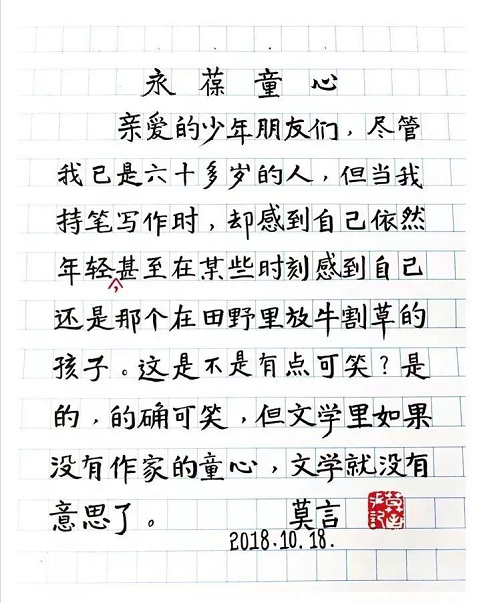 永葆童心
亲爱的少年朋友们，尽管
我已是六十多岁的人，但当我
持笔写作时，却感到自己依然
年轻，甚至在某些时刻感到自己
还是那个在田野里放牛割草的
孩子。这是不是有点可笑？是
的，的确可笑，但文学里如果
没有作家的童心，文学就没有
意思了。 莫言
2018.10.18.